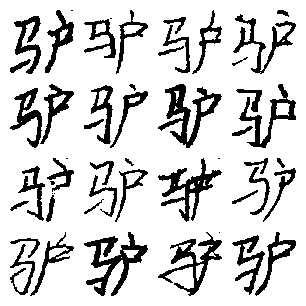 驴驴驴驴
驴驴驴驴
驴驴驴驴
驴驴驴驴